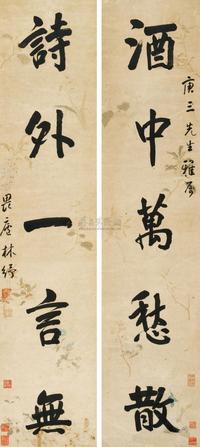 酒中萬愁散
庚三先生雅屬
詩外一言無
畏廬林紓